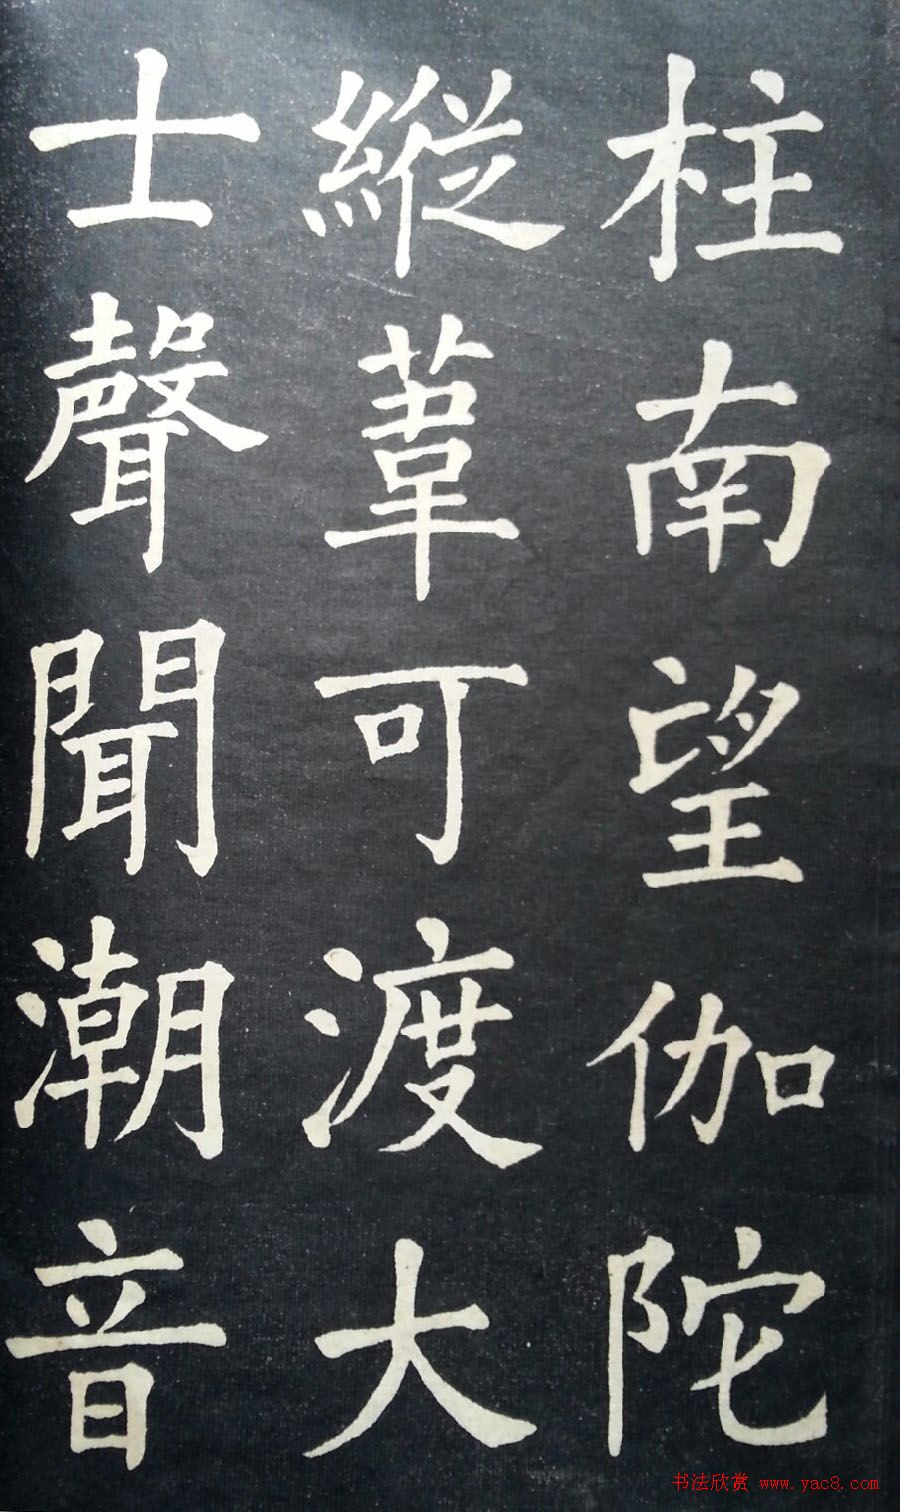 柱南望伽陀
縱葦可渡大
士聲聞潮音
书法欣赏 www.yac8.com